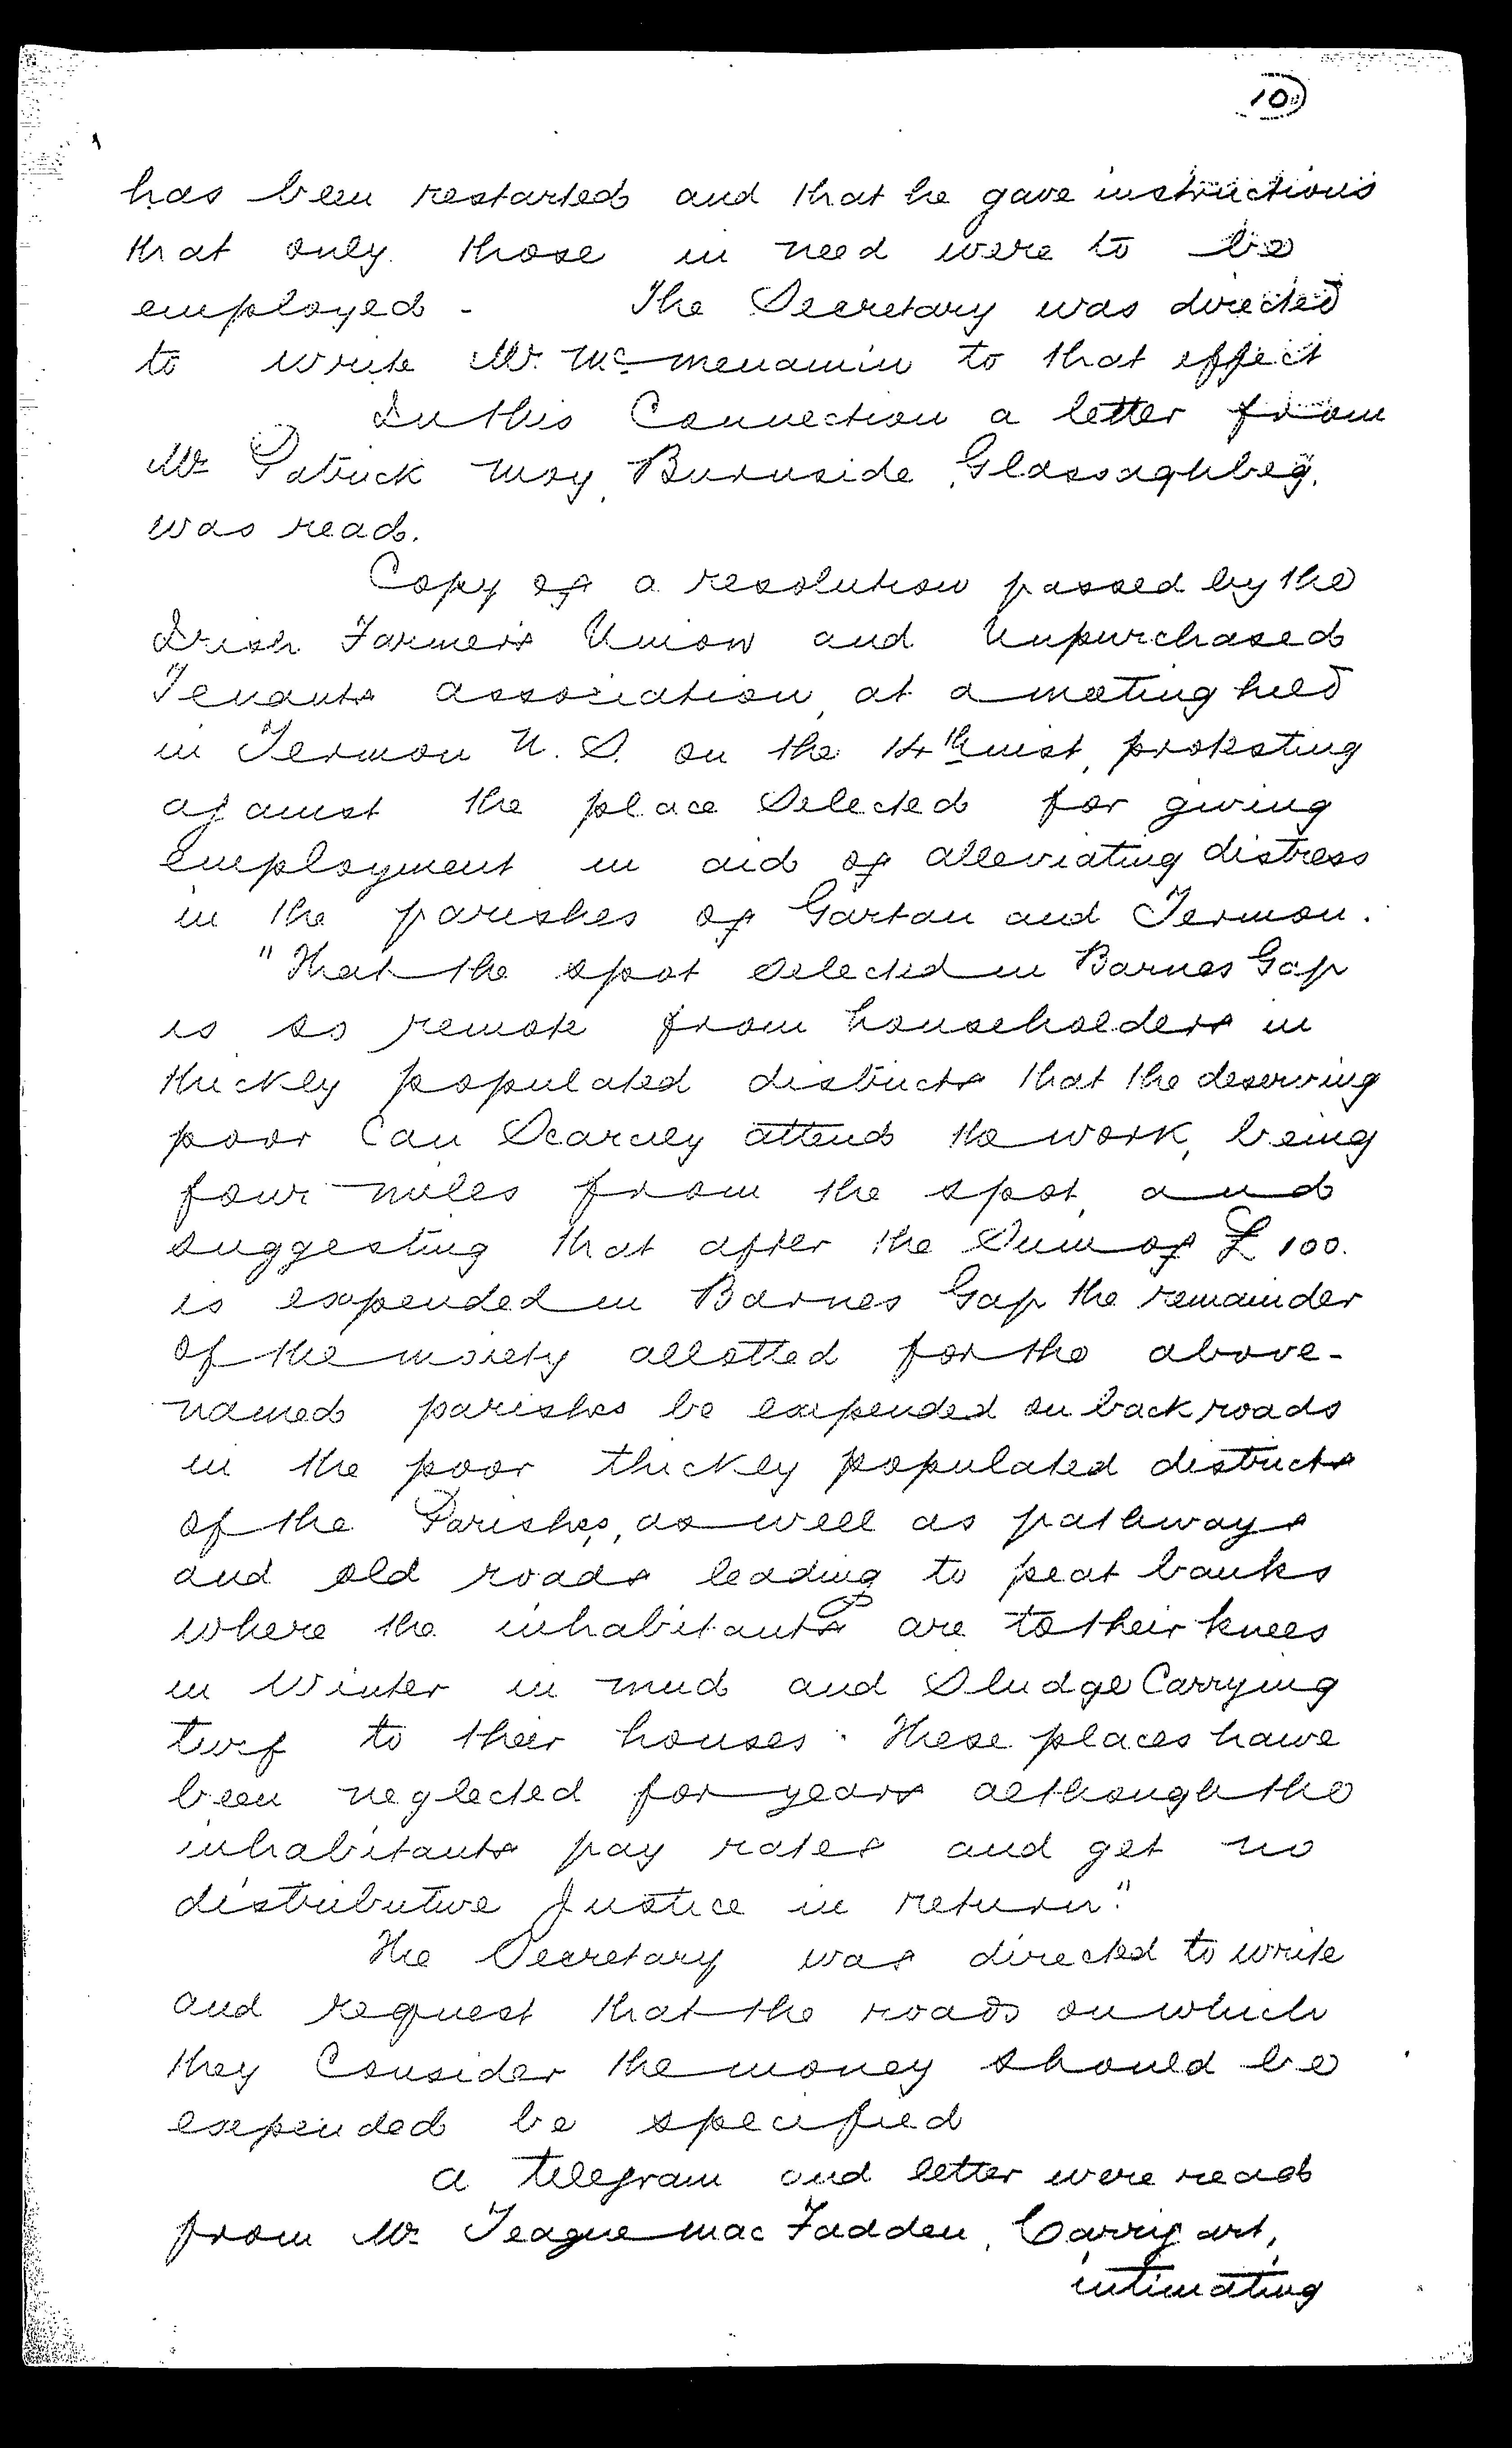 10
has been restarted and that he gave instructions
that only those in need were to be
employed - The Secretary was directed
to write Mr. McMenamin to that effect
In this Connection a letter from
Mr Patrick May, Burnside, Glassaghbeg,
was read.
Copy of a resolution passed by the
Irish Farmers Union and Unpurchased
Tenants association, at a meeting held
in Termon N. S. on the 14th inst, protesting
against the place Selected for giving
employment in aid of alleviating distress
in the parishes of Gartan and Termon.
"That the spot selected in Barnes Gap
is so remote from householders in
thickly populated districts that the deserving
poor Can Scarcely attend the work, being
four miles from the spot, and
suggesting that after the Sum of £100.
is expended in Barnes Gap the remainder
of the moiety allotted for the above-
named parishes be expended on back roads
in the poor thickly populated districts
of the Parishes, as well as pathways
and old roads leading to peat banks
where the inhabitants are to their knees
in Winter in mud and Sludge Carrying
turf to their houses. These places have
been neglected for years although the
inhabitants pay rates and get no
distributive Justice in return."
The Secretary was directed to write
and request that the roads on which
they Consider the money should be
expended be specified
A telegram and letter were read
from Mr Teague MacFadden, Carrigart,
intimating